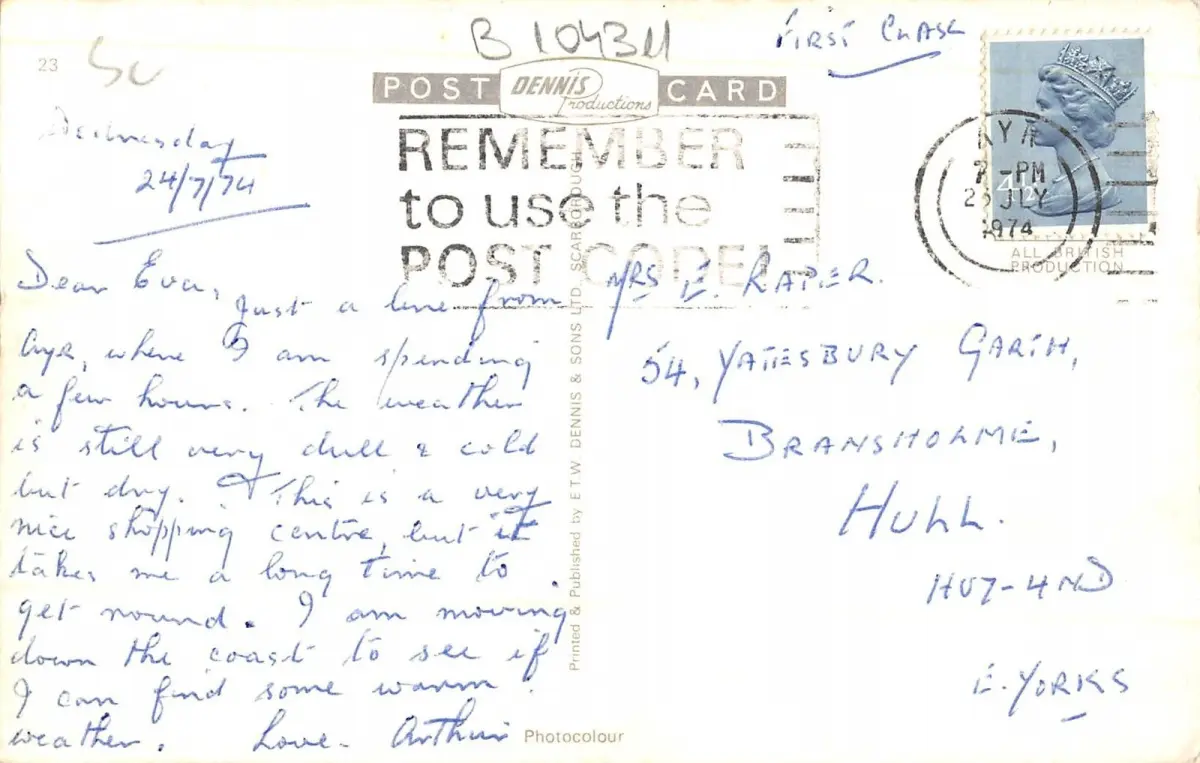 B 1043M
FIRST CLASS
23
POST CARD
DENNIS
Productions
REMEMBER
to use the
POST CODE!
PM
JLY
1974
4½
ALL BRITISH
PRODUCTION
Wednesday
24/7/74
Dear Eva,
Just a line from
Ayr, where I am spending
a few hours. The weather
is still very dull & cold
but dry. This is a very
nice shopping centre, but it
takes me a long time to
get round. I am moving
down the coast to see if
I can find some warm
weather. Love - Arthur
Printed & Published by E.T.W. DENNIS & SONS LTD., SCARBOROUGH
Photocolour
MRS E. RAPER.
54, YATESBURY GARTH,
BRANSHOLME,
HULL.
HU7-4ND
E. YORKS